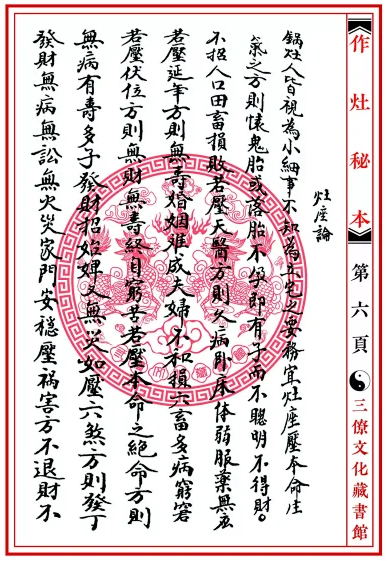 作灶秘本 第六頁 三僚文化藏書館
灶座論
鍋灶人皆視為小細事不知為立宅之要務宜灶座壓本命生
氣之方則懷鬼胎或落胎不孕即有子而不聰明不得財。
不招人口田畜損敗若壓天醫方則久病卧床体弱服藥無
若壓延年方則無壽婚姻难成夫婦不和損六畜多病窮窘
若壓伏位方則無財無壽終身窮苦若壓本命之絕命方則
無病有壽多子發財招始婢又無災如壓六煞方則發丁
發財無病無訟無火災家門安穩壓祸害方不退財不